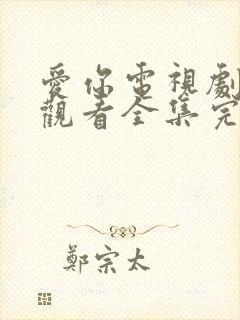 愛你電視劇
觀看全集完
鄭宗太